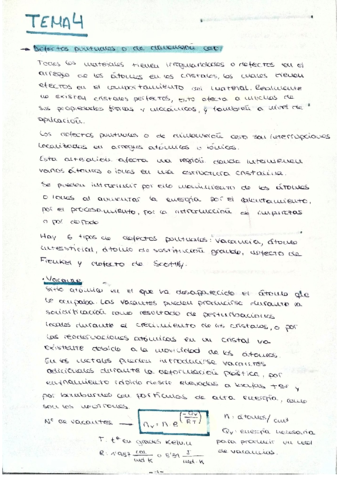 TEMA 4
Defectos puntuales o de dimensión cero
Todos los materiales tienen irregularidades o defectos en el
arreglo de los átomos en los cristales, los cuales tienen
efectos en el comportamiento del material. Realmente
no existen cristales perfectos, esto afecta a muchas de
sus propiedades físicas y mecánicas, y también a nivel de
aplicación.
Los defectos puntuales o de dimensión cero son interrupciones
localizadas en arreglos atómicos o iónicos.
Esta alteración afecta una región donde intervienen
varios átomos o iones en una estructura cristalina.
Se pueden introducir por el movimiento de los átomos
o iones al aumentar la energía por el calentamiento,
por el procesamiento, por la introducción de impurezas
o por dopado
Hay 6 tipos de defectos puntuales: vacancia, átomo
intersticial, átomo de sustitución grande, defecto de
Frenkel y defecto de Schottky.
· Vacante
Sitio atómico en el que ha desaparecido el átomo que
lo ocupaba. Las vacantes pueden producirse durante la
solidificación como resultado de perturbaciones
locales durante el crecimiento de los cristales, o por
las reordenaciones atómicas en un cristal ya
existente debido a la movilidad de los átomos.
En los metales pueden introducirse vacantes
adicionales durante la deformación plástica, por
enfriamiento rápido desde elevadas a bajas Tas y
por bombardeo con partículas de alta energía, como
son los neutrones
Nº de vacantes → nv = n e^(-Qv/RT) n: átomos / cm³
Qv: energía necesaria
T: tª en grados Kelvin para producir un mol
R: 1'987 cal/mol·K o 8'31 J/mol·K de vacantes.
-1-